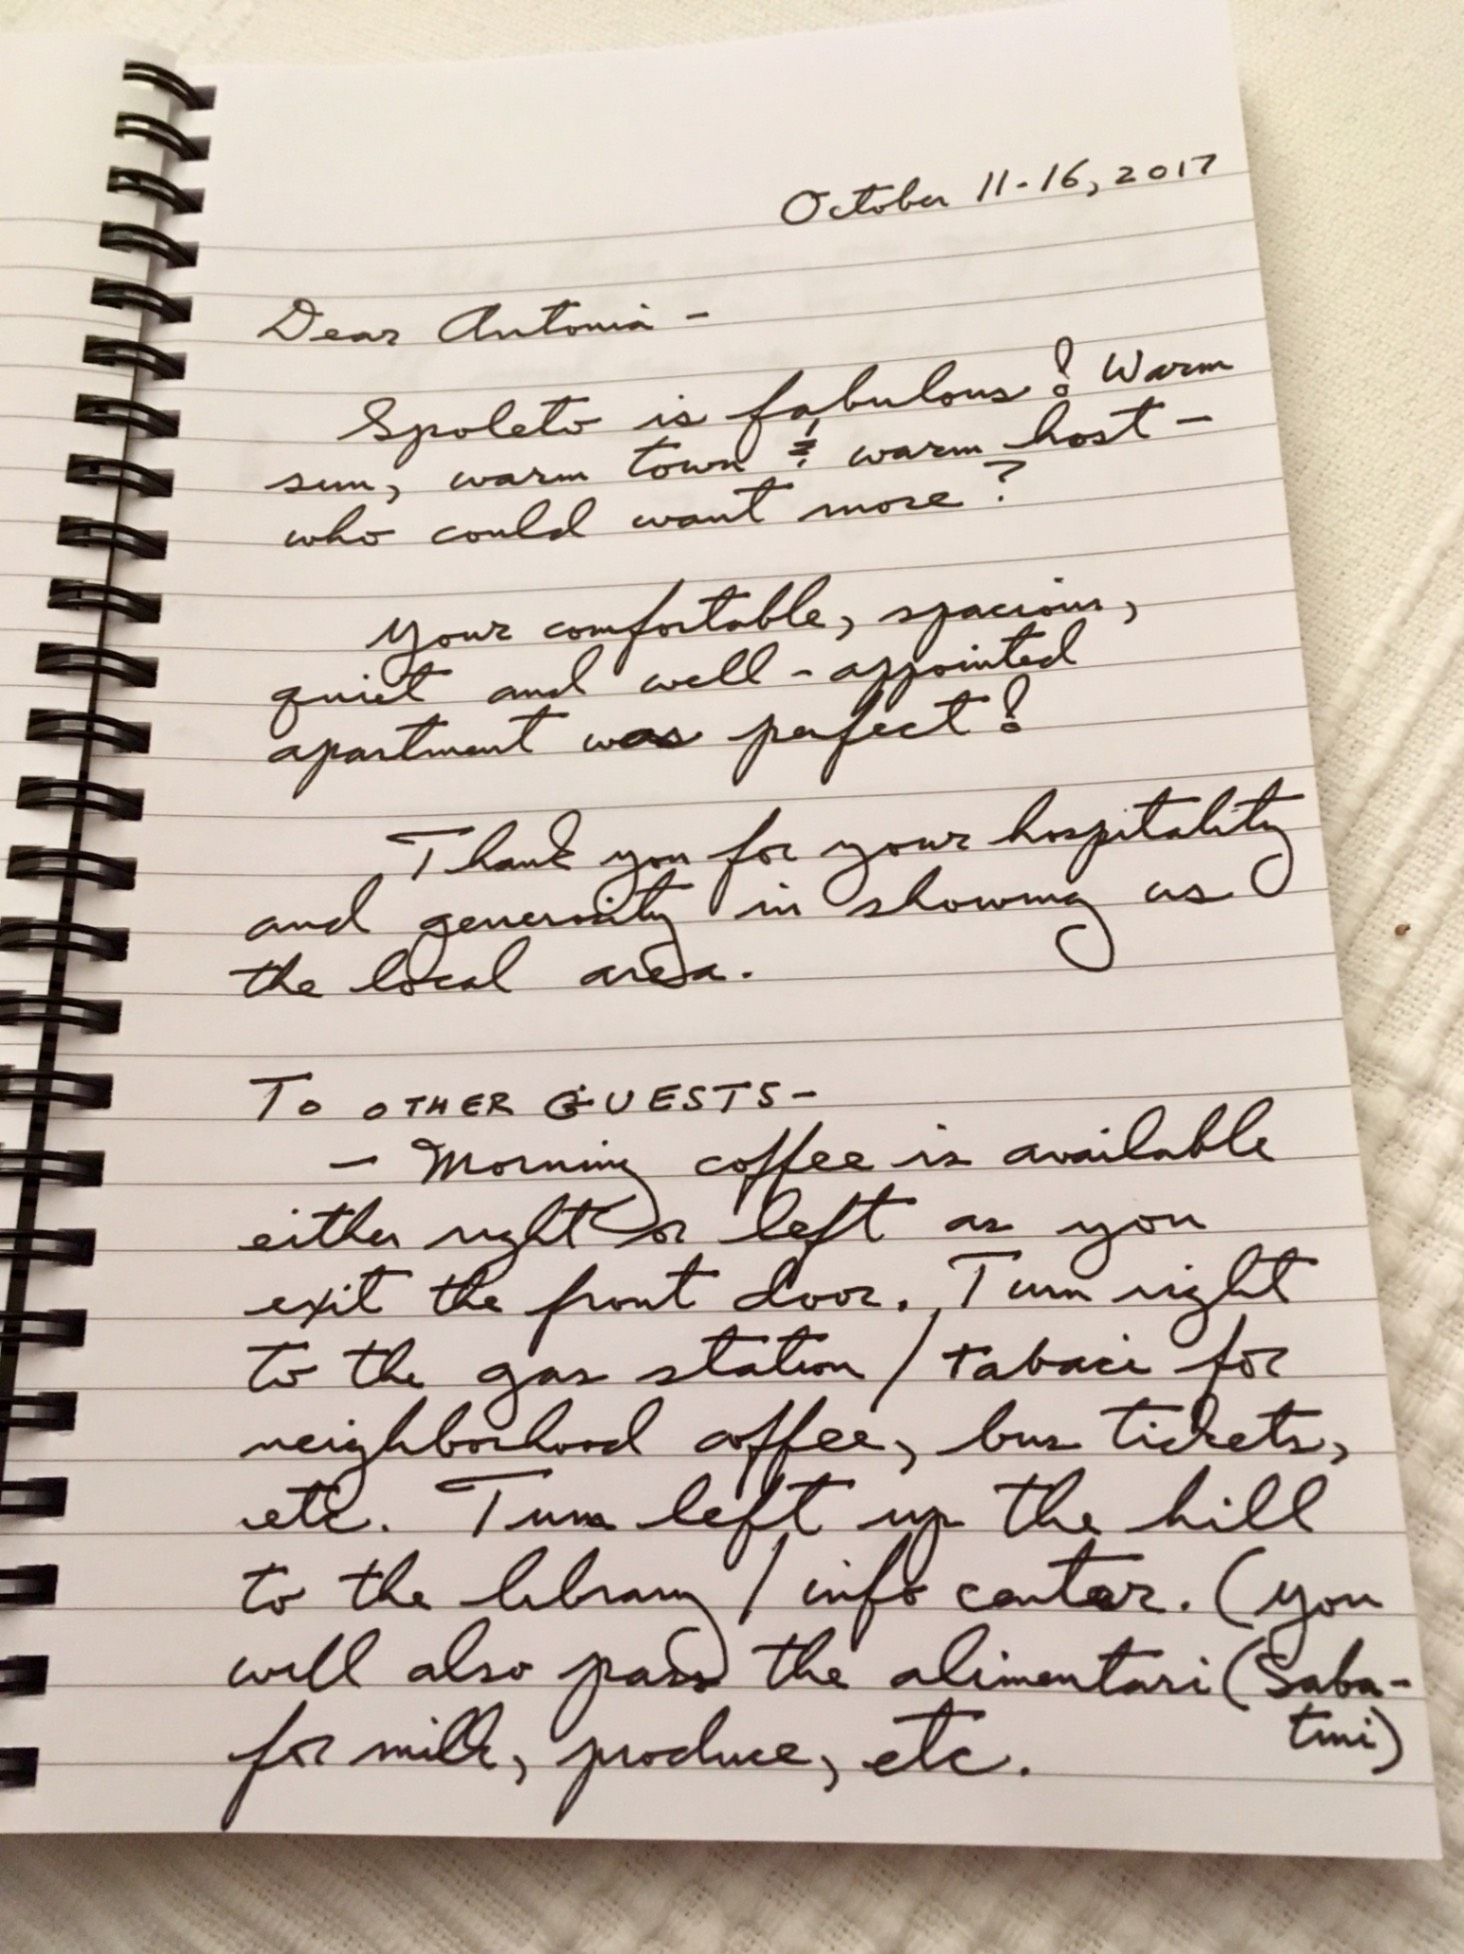 October 11-16, 2017
Dear Antonia -
Spoleto is fabulous! Warm
sun, warm town & warm host -
who could want more?
Your comfortable, spacious,
quiet and well-appointed
apartment was perfect!
Thank you for your hospitality
and generosity in showing us
the local area.
To OTHER GUESTS-
- Morning coffee is available
either right or left as you
exit the front door. Turn right
to the gas station / tabaci for
neighborhood coffee, bus tickets,
etc. Turn left up the hill
to the library / info center. (You
will also pass the alimentari (Saba-
tini)
for milk, produce, etc.